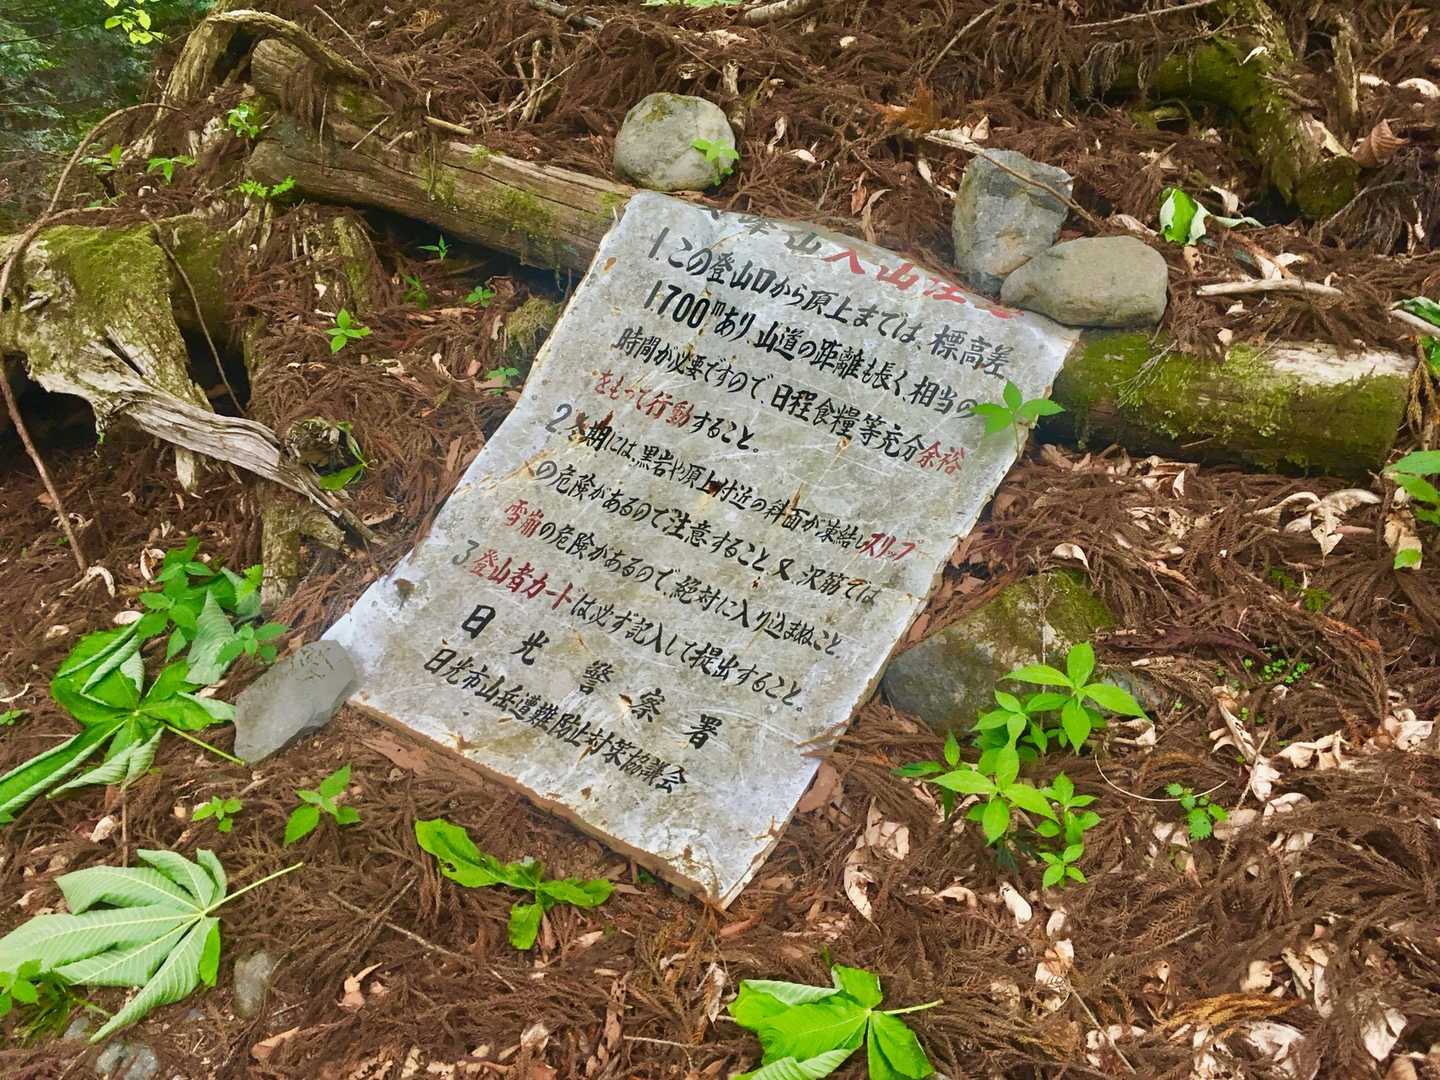 峯山入山注意
1.この登山口から頂上までは、標高差
1,700mあり、山道の距離も長く、相当の
時間が必要ですので、日程食糧等充分余裕
をもって行動すること。
2.冬期には、黒岩や頂上付近の斜面が凍結しスリップ
の危険があるので注意すること又、沢筋では
雪崩の危険があるので、絶対に入り込まぬこと。
3登山者カートは必ず記入して提出すること。
日光警察署
日光市山岳遭難防止対策協議会